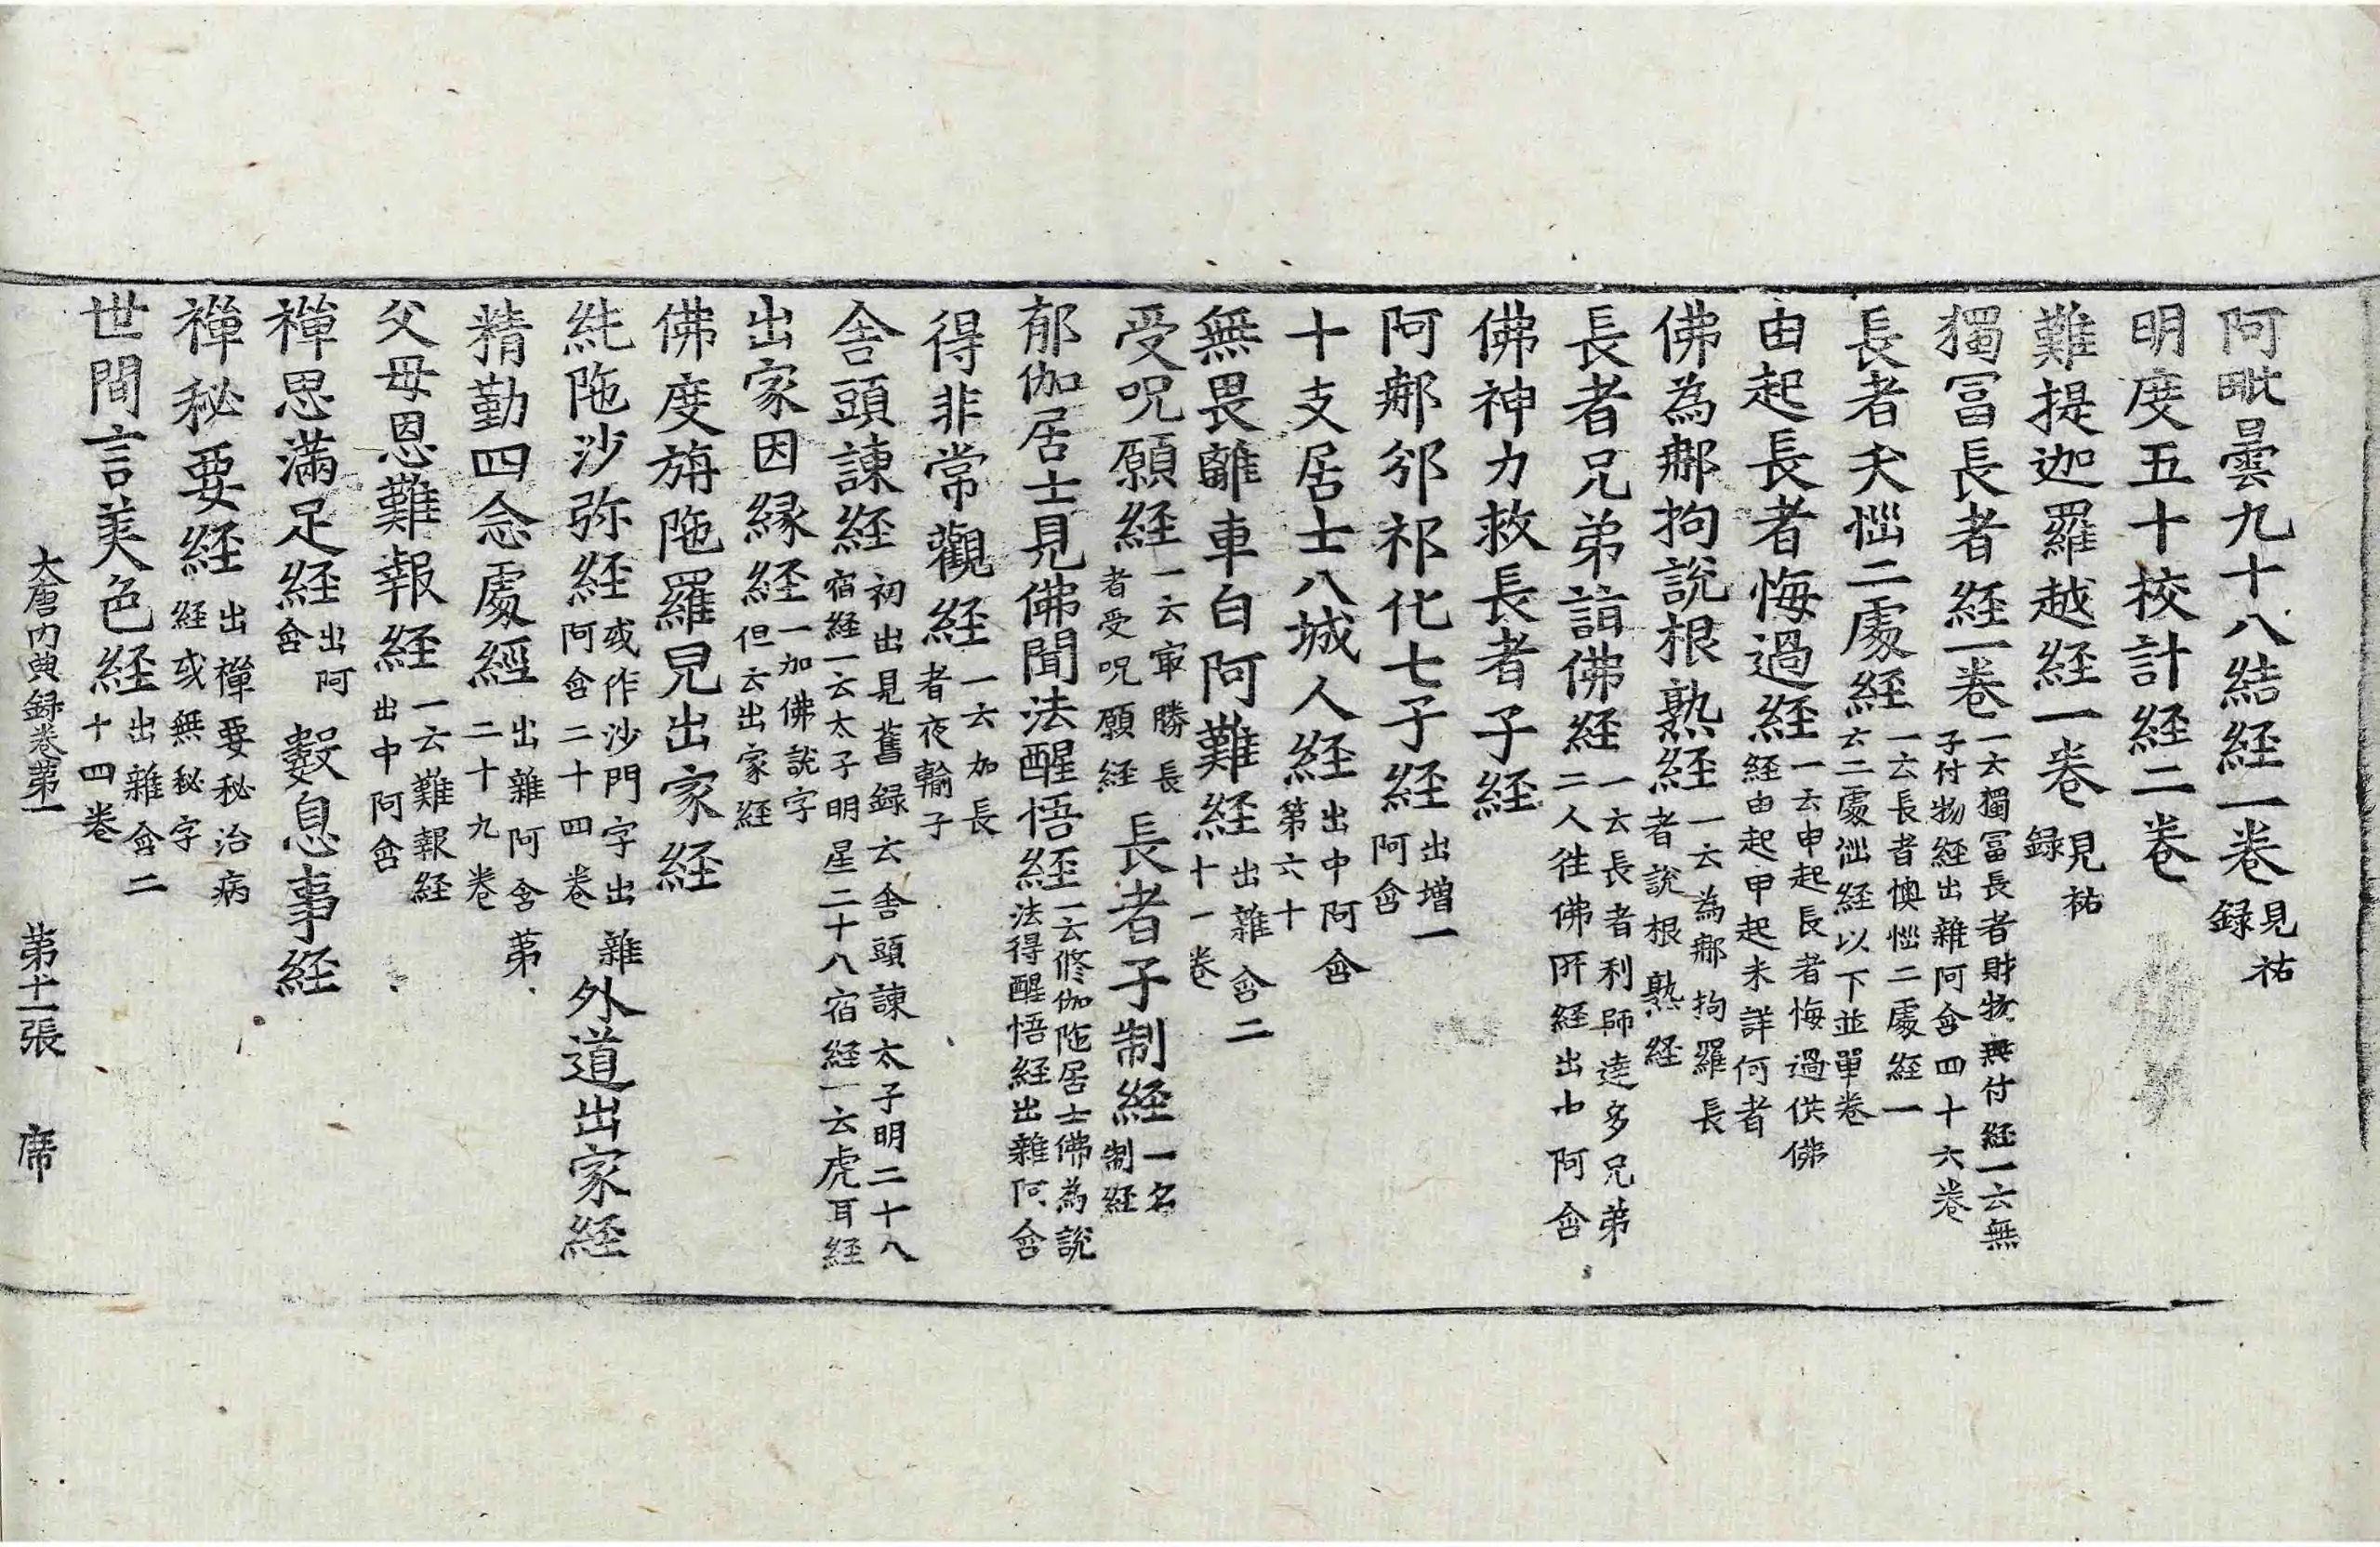 阿毗曇九十八結経一卷見祐録
明度五十校計経二卷
難提迦羅越経一卷見祐録
獨冨長者経一卷一云獨冨長者財物無付経一云無子付物経出雜阿含四十六卷
長者夭惱二處経一云長者懊惱二處経一云二處惱経以下並單卷
由起長者悔過経一云申起長者悔過供佛経由起甲起未詳何者
佛為郍拘說根熟経一云為郍拘羅長者說根熟経
長者兄弟詣佛経一云長者利師逹多兄弟二人往佛所経出中阿含
佛神力救長者子経
阿郍邠祁化七子経出增一阿含
十支居士八城人経出中阿含第六十
無畏離車白阿難経出雜含二十一卷
受呪願経一云㝡勝長者受呪願経 長者子制経一名制経
郁伽居士見佛聞法醒悟経一云修伽陁居士佛為說法得醒悟経出雜阿含
得非常觀経一云加長者夜輸子
舎頭諫経初出見舊録云舎頭諫太子明二十八宿経一云太子明星二十八宿経一云虎耳経
出家因縁経一加佛說字但云出家経
佛度旃陁羅兒出家経
純陁沙弥経或作沙門字出雜阿含二十四卷 外道出家経
精勤四念處經出雜阿含第二十九卷
父母恩難報経一云難報経出中阿含
禅思滿足経出阿含 數息事経
禅秘要経出禅要秘治病経或無秘字
世間言美色経出雜含二十四卷
大唐内典録卷第一 第十一張 席